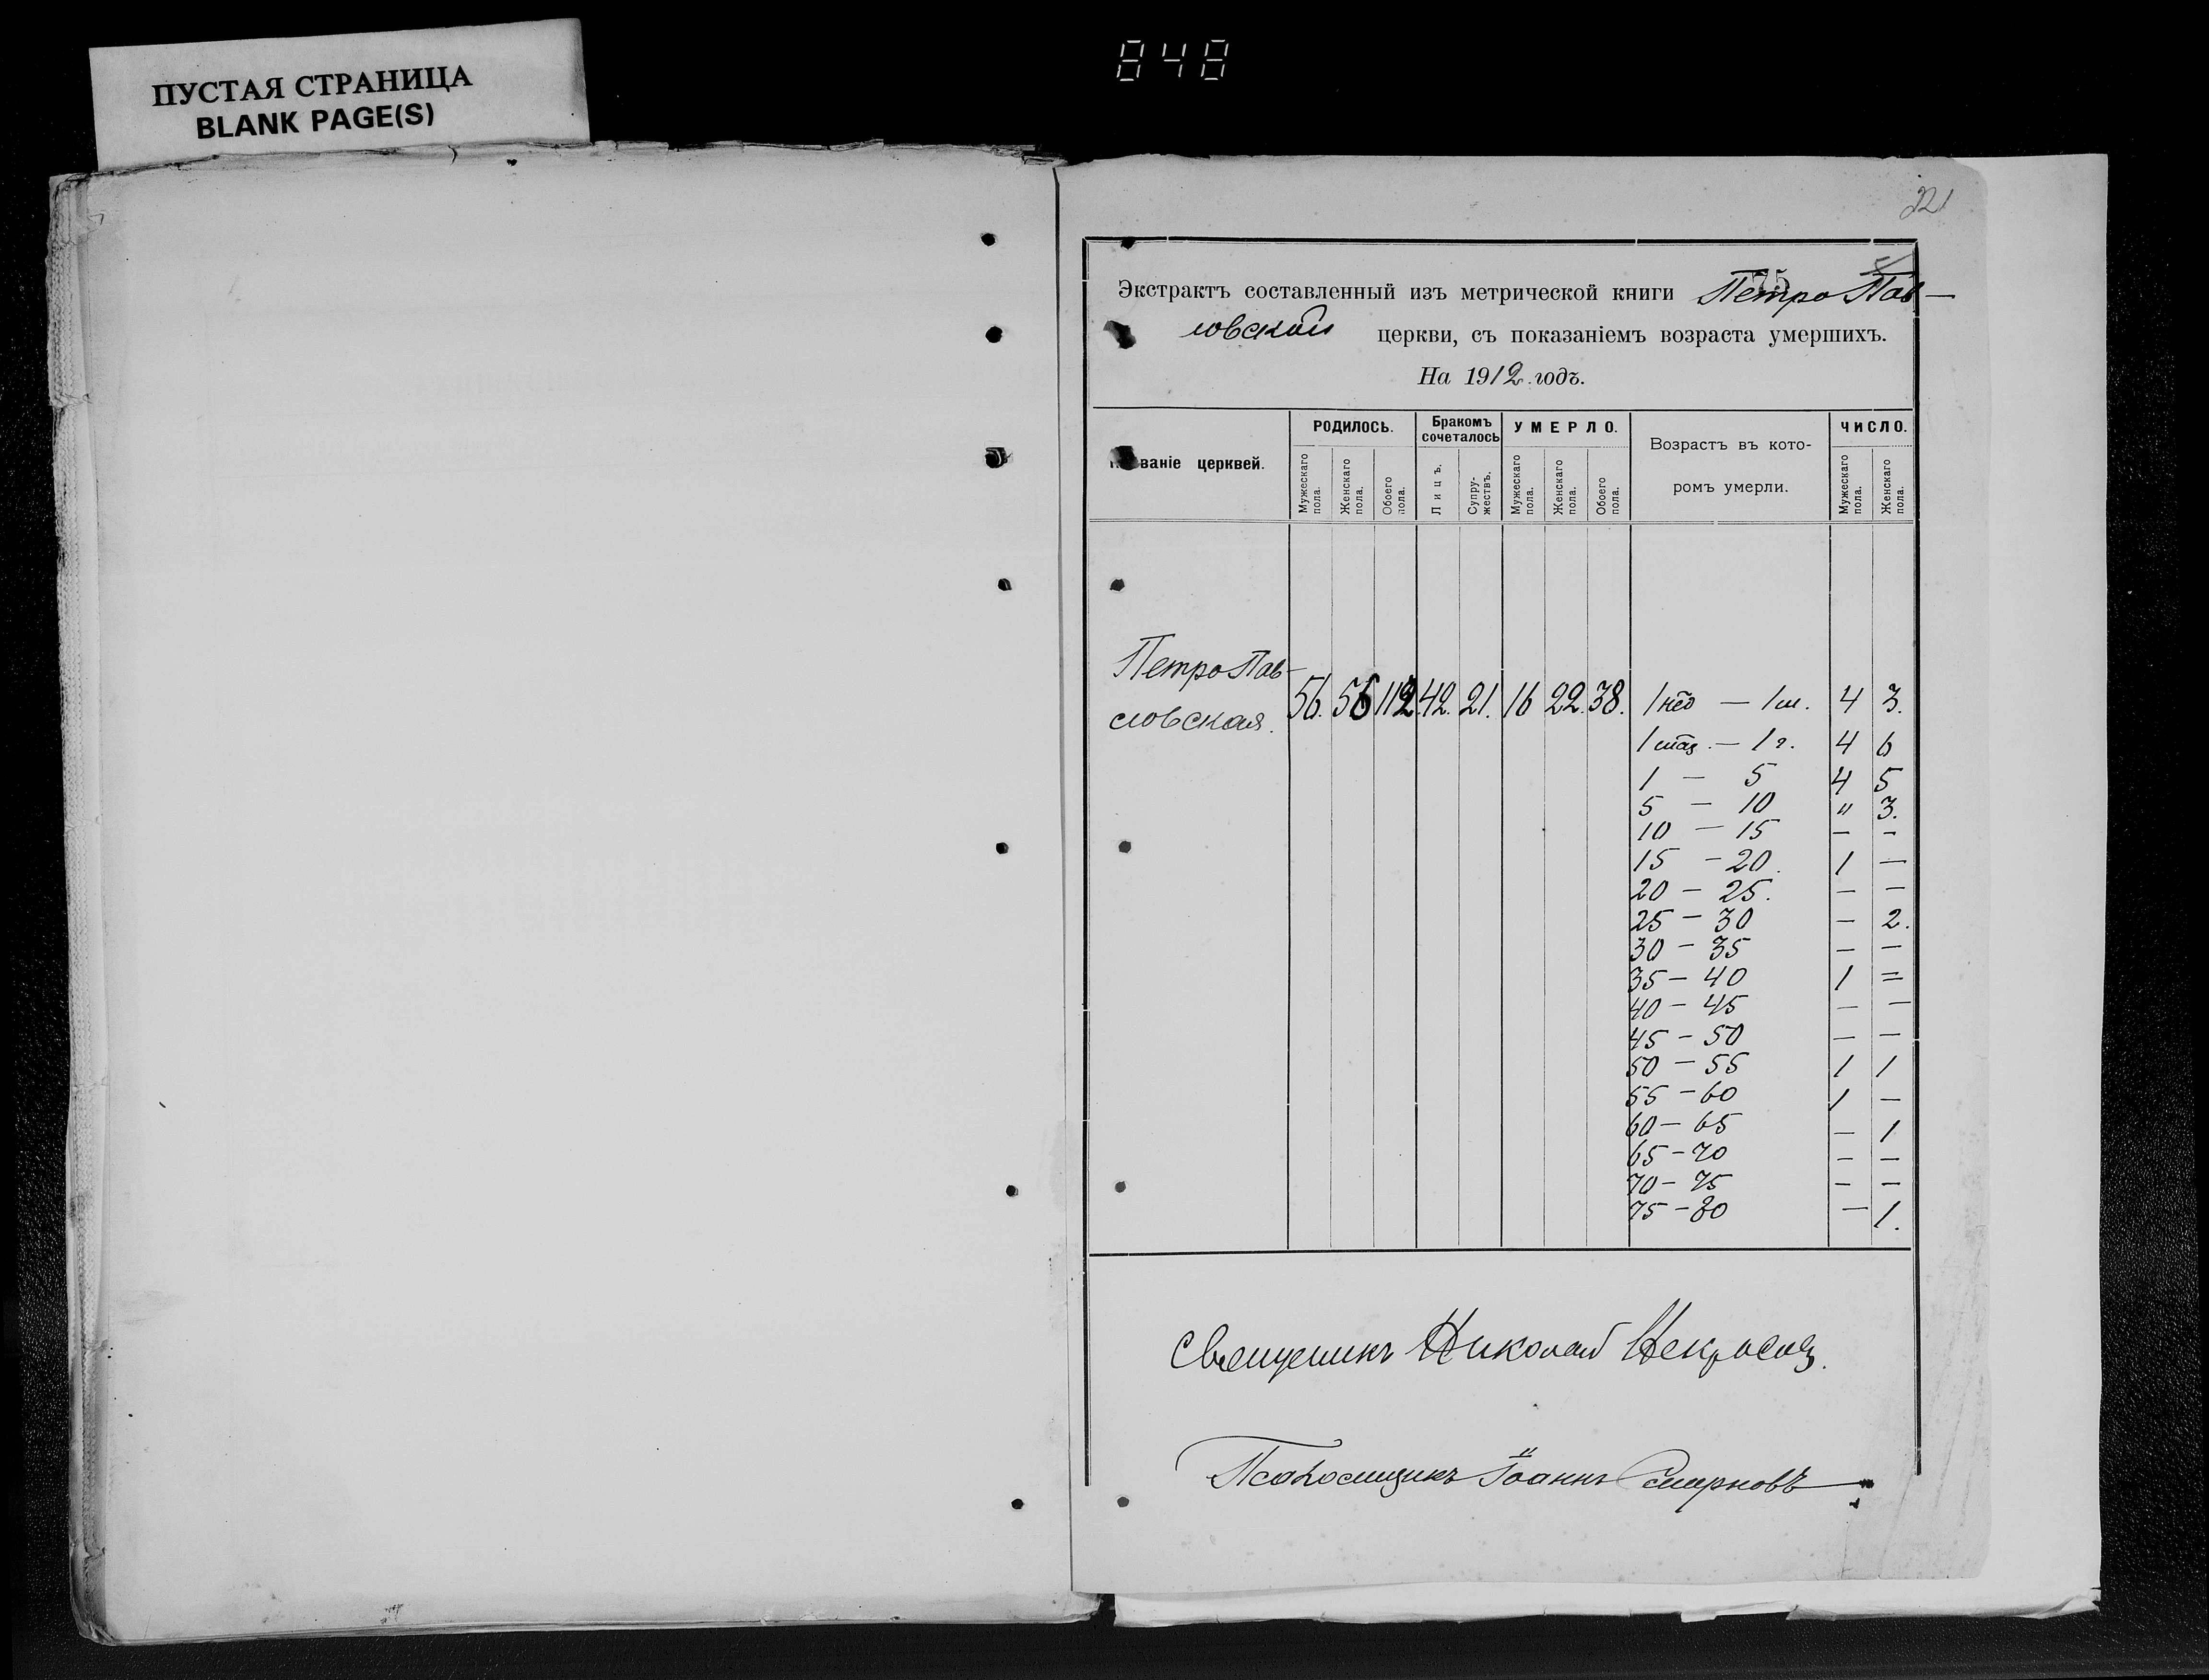 848
ПУСТАЯ СТРАНИЦА
BLANK PAGE(S)
221
75
Экстрактъ составленный изъ метрической книги Петро Пав-
ловской церкви, съ показаніемъ возраста умершихъ.
На 1912 годъ.
ваніе церквей.
РОДИЛОСЬ.
Мужескаго пола.
Женскаго пола.
Обоего пола.
Бракомъ сочеталось
Лицъ.
Супружествъ.
УМЕРЛО.
Мужескаго пола.
Женскаго пола.
Обоего пола.
Возрастъ въ кото-
ромъ умерли.
ЧИСЛО.
Мужескаго пола.
Женскаго пола.
Петро Пав-
ловская. 56. 56 112 42. 21. 16 22. 38. 1 нед — 1 м. 4 3.
1 мѣс. — 1 г. 4 6
1 — 5 4 5
5 — 10 " 3.
10 — 15 — —
15 — 20. 1 —
20 — 25. — —
25 — 30 — 2.
30 — 35 — —
35 — 40 1 =
40 — 45 — —
45 — 50 — —
50 — 55 1 1
55 — 60 1 —
60 — 65 — 1
65 — 70 — —
70 — 75 — —
75 — 80 — 1.
Священникъ Николай Некрасовъ.
Псаломщикъ Іоаннъ Смирновъ